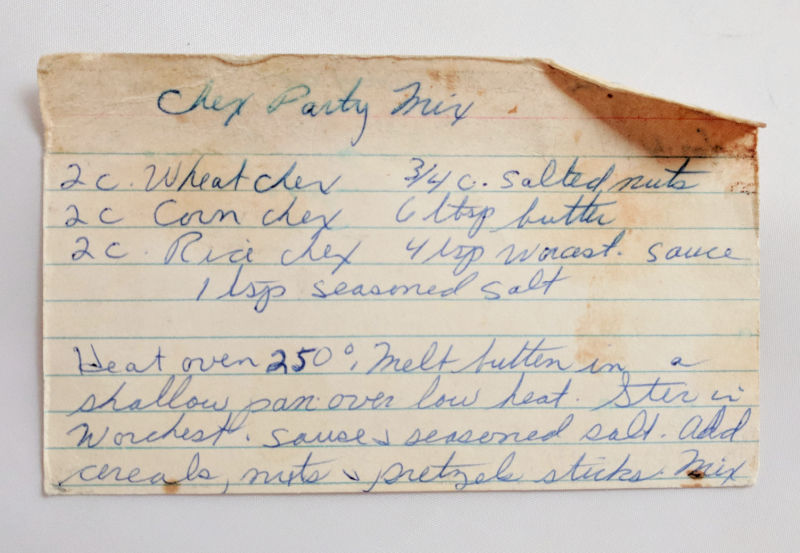 Chex Party Mix
2 c. Wheat chex 3/4 c. salted nuts
2 c Corn chex 6 tbsp butter
2 c. Rice chex 4 tsp Worcest. sauce
1 tsp seasoned salt
Heat oven 250°. Melt butter in a
shallow pan over low heat. Ster in
Worchest. sause & seasoned salt. Add
cereals, nuts & pretzels sticks. Mix